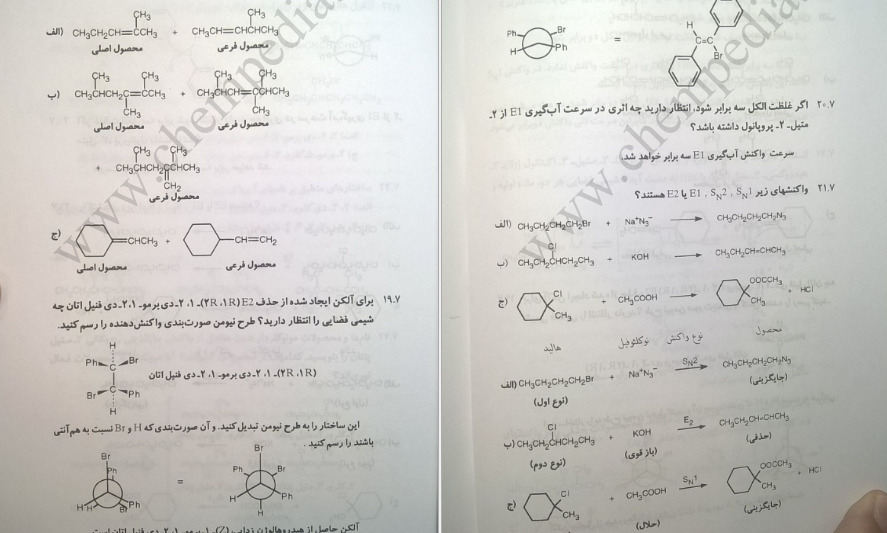 CH₃ CH₃
الف) CH₃CH₂CH=CCH₃ + CH₃CH=CHCHCH₃
محصول اصلی محصول فرعی
CH₃ CH₃ CH₃ CH₃
ب) CH₃CHCH₂C=CCH₃ + CH₃CHCH=CCHCH₃
CH₃ CH₃
محصول اصلی محصول فرعی
CH₃ CH₃
+ CH₃CHCH₂CCHCH₃
CH₂
محصول فرعی
ج) =CHCH₃ + —CH=CH₂
محصول اصلی محصول فرعی
۱۹.۷ برای آلکن ایجاد شده از حذف E2 (۱R، ۲R)ـ ۱، ۲ـ دی برمو ـ ۱، ۲ـ دی فنیل اتان چه
شیمی فضایی را انتظار دارید؟ طرح نیومن صورت‌بندی واکنش‌دهنده را رسم کنید.
H
Ph C Br
(۱R، ۲R)ـ ۱، ۲ـ دی برمو ـ ۱، ۲ـ دی فنیل اتان
Br C Ph
H
این ساختار را به طرح نیومن تبدیل کنید. و آن صورت‌بندی که H و Br نسبت به هم آنتی
باشند را رسم کنید.
Br Br
Ph Ph Br
=
H H Br Ph H Ph
H
آلکن حاصل از هیدروهالوژن زدایی، (Z)ـ ۱ـ برمو ـ ۱، ۲ـ دی فنیل اتان است
Ph Br H
= C=C
H Ph Br
۲۰.۷ اگر غلظت الکل سه برابر شود، انتظار دارید چه اثری در سرعت آب‌گیری E1 از ۲ـ
متیل ـ ۲ـ پروپانول داشته باشد؟
سرعت واکنش آب‌گیری E1 سه برابر خواهد شد.
۲۱.۷ واکنشهای زیر E1 ، S_N2 ، S_N1 یا E2 هستند؟
الف) CH₃CH₂CH₂CH₂Br + Na⁺N₃⁻ → CH₃CH₂CH₂CH₂N₃
Cl
ب) CH₃CH₂CHCH₂CH₃ + KOH → CH₃CH₂CH=CHCH₃
ج) Cl CH₃ + CH₃COOH → OOCCH₃ CH₃ + HCl
هالید نوکلئوفیل نوع واکنش محصول
الف) CH₃CH₂CH₂CH₂Br + Na⁺N₃⁻ S_N2 → CH₃CH₂CH₂CH₂N₃
(نوع اول) (جایگزینی)
Cl
ب) CH₃CH₂CHCH₂CH₃ + KOH E₂ → CH₃CH₂CH=CHCH₃
(نوع دوم) (باز قوی) (حذفی)
ج) Cl CH₃ + CH₃COOH S_N1 → OOCCH₃ CH₃ + HCl
(حلال) (جایگزینی)
www.chempedia
www.chempedia